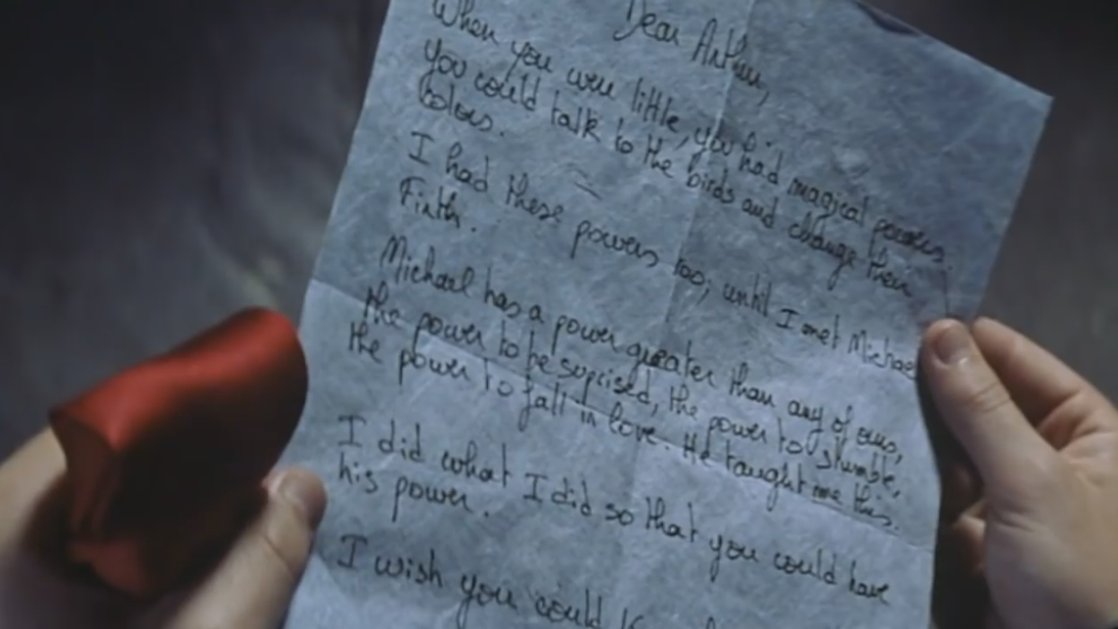 Dear Arthur,
When you were little, you had magical powers.
you could talk to the birds and change their
colors.
I had these powers too; until I met Michael
Firth.
Michael has a power greater than any of ours,
the power to be suprised, the power to stumble,
the power to fall in love. He taught me this.
I did what I did so that you could have
his power.
I wish you could